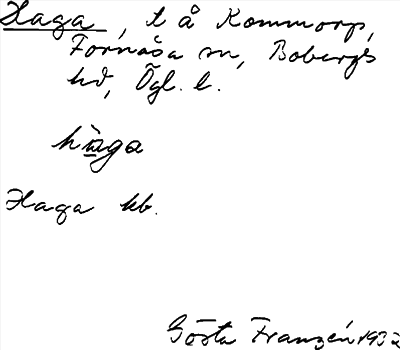 Haga, t å Kommorp,
Fornåsa sn, Bobergs
hd, Ögl. l.
hàga
Haga kb.
Gösta Franzén 1932